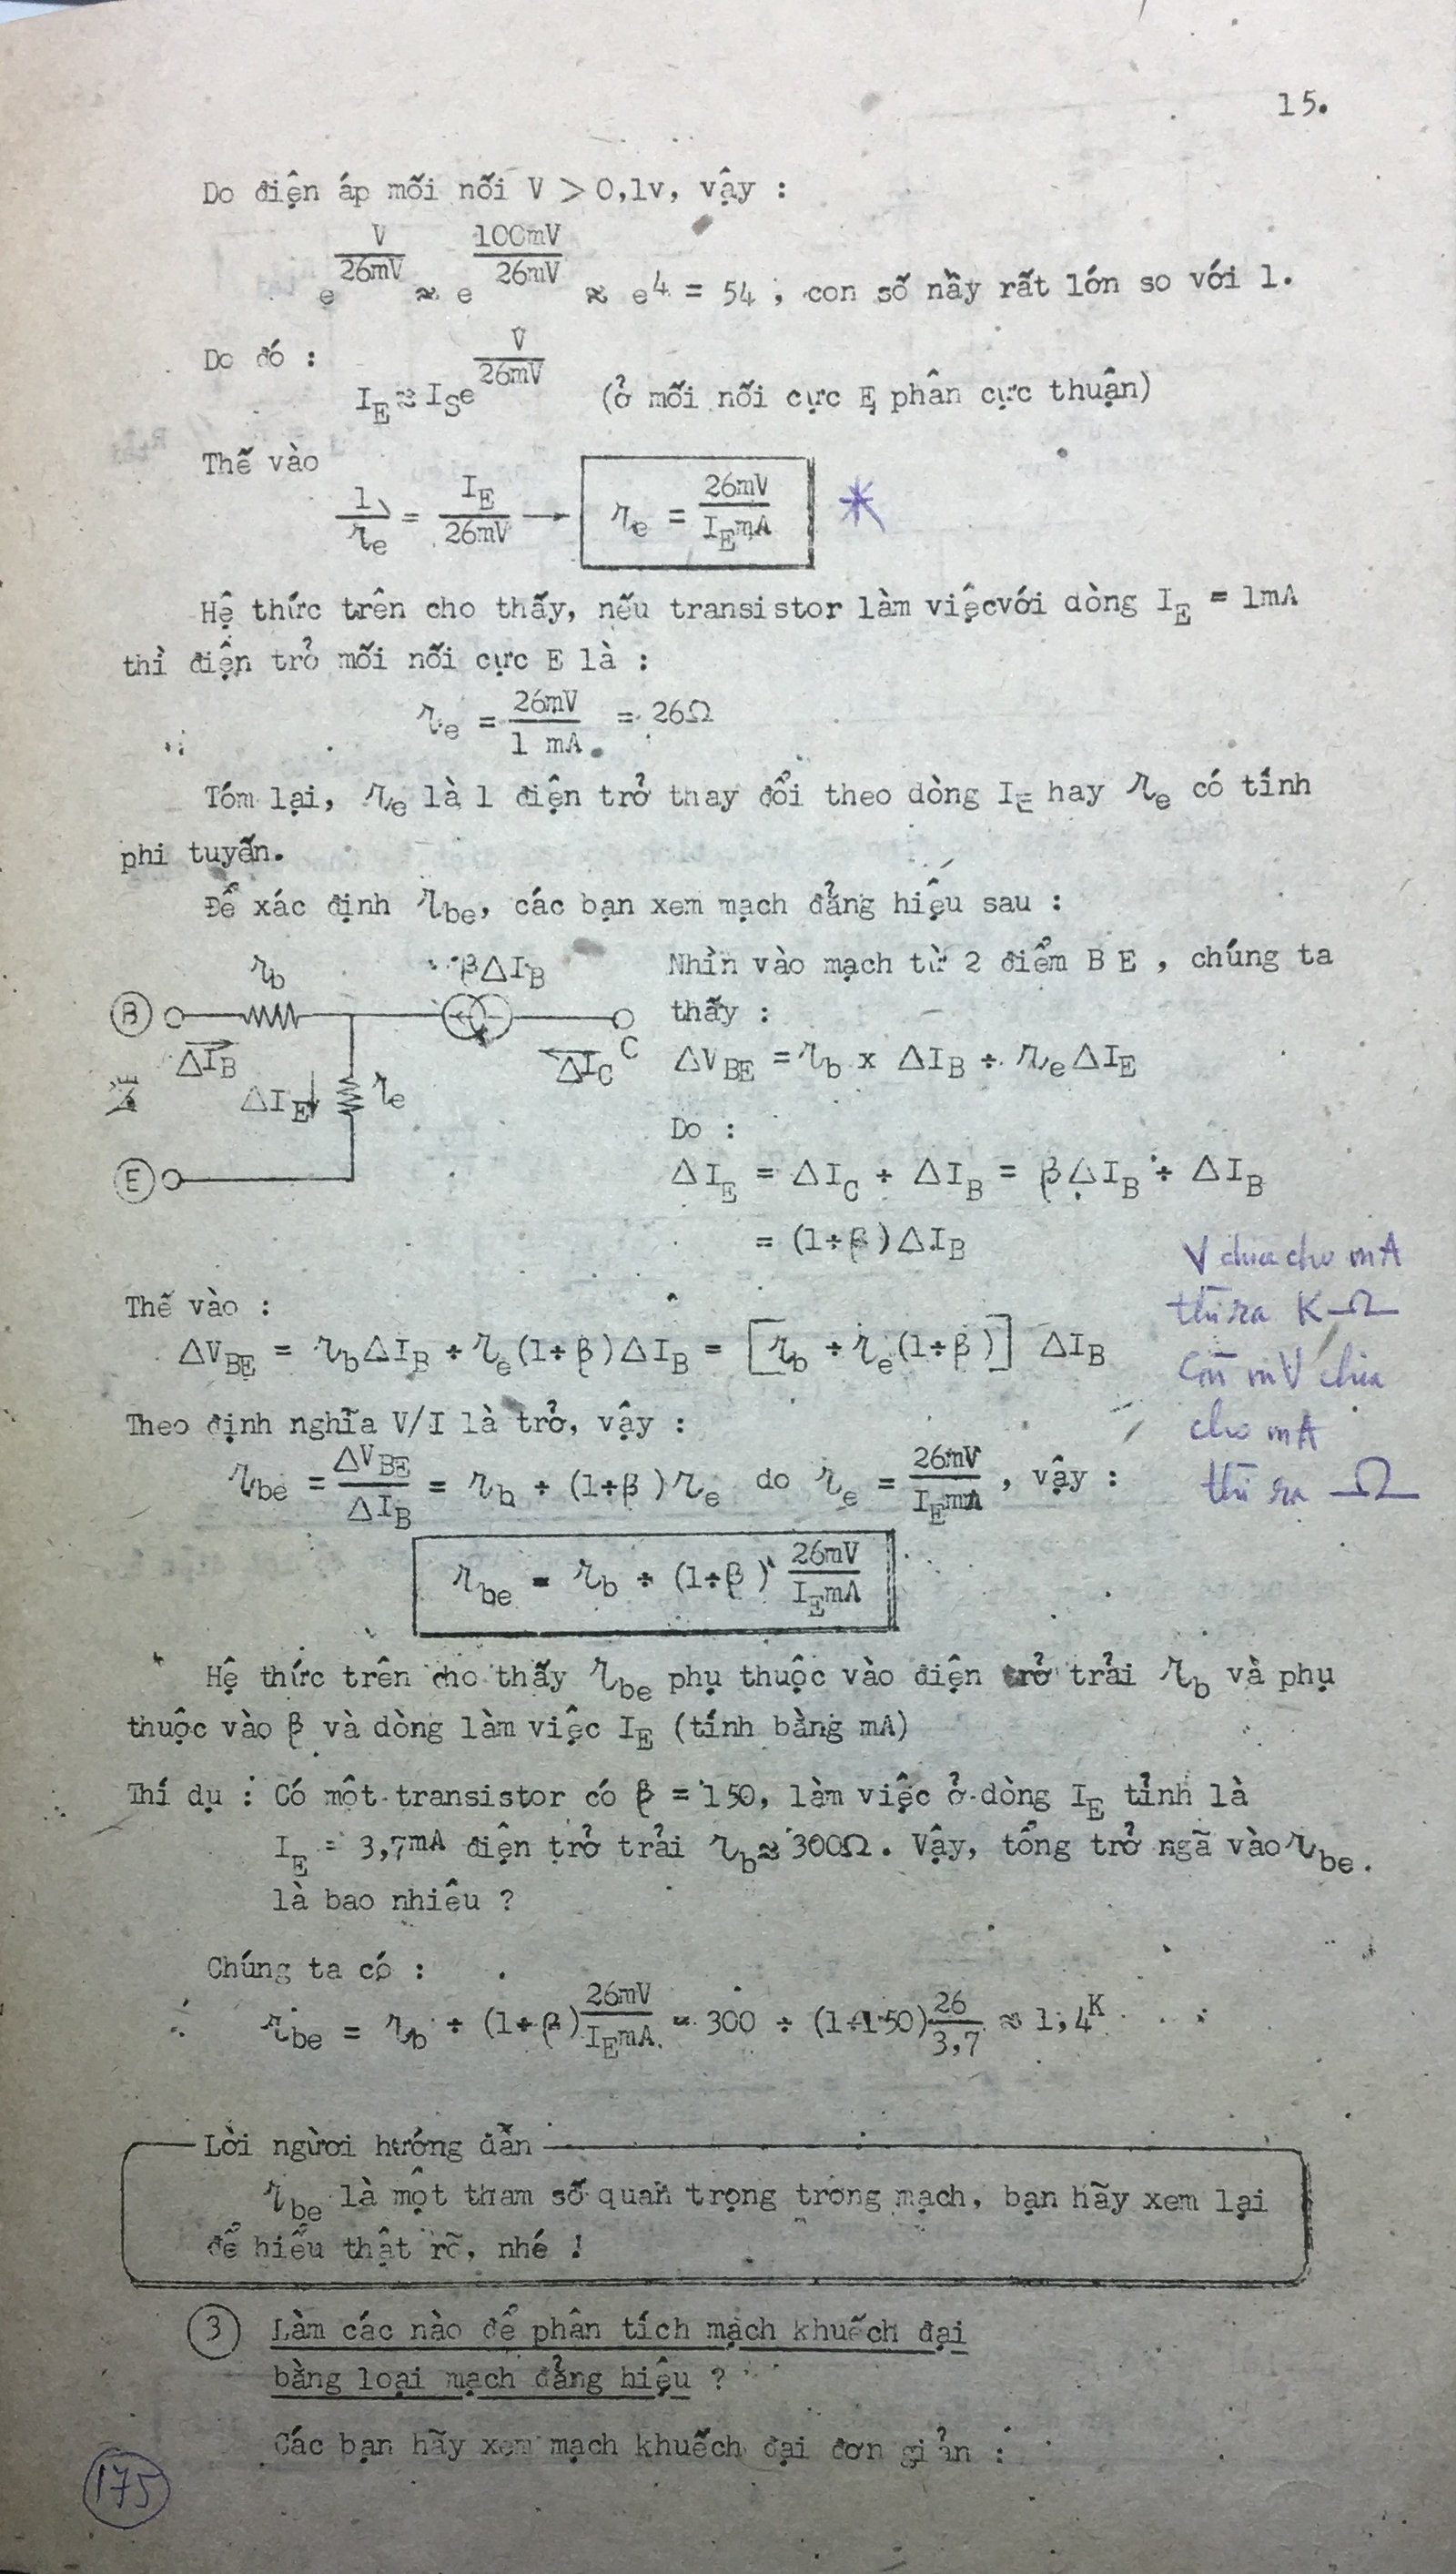 15.
Do điện áp mối nối V > 0,1v, vậy :
e^(V/26mV) ≈ e^(100mV/26mV) ≈ e4 = 54 ; con số nầy rất lớn so với 1.
Do đó :
IE ≈ ISe^(V/26mV) (ở mối nối cực E phân cực thuận)
Thế vào
1/re = IE/26mV → re = 26mV/IEmA *
Hệ thức trên cho thấy, nếu transistor làm việcvới dòng IE = 1mA
thì điện trở mối nối cực E là :
re = 26mV/1 mA = 26Ω
Tóm lại, re là 1 điện trở thay đổi theo dòng IE hay re có tính
phi tuyến.
Để xác định rbe, các bạn xem mạch đẳng hiệu sau :
rb
βΔIB
B
C
ΔIB
ΔIC
ΔIE
re
E
Nhìn vào mạch từ 2 điểm B E , chúng ta
thấy :
ΔVBE = rb x ΔIB ÷ reΔIE
Do :
ΔIE = ΔIC ÷ ΔIB = βΔIB ÷ ΔIB
= (1÷β)ΔIB
V chia cho mA
thì ra KΩ
Còn mV chia
cho mA
thì ra Ω
Thế vào :
ΔVBE = rbΔIB ÷ re(1÷β)ΔIB = [rb ÷ re(1÷β)] ΔIB
Theo định nghĩa V/I là trở, vậy :
rbe = ΔVBE/ΔIB = rb ÷ (1÷β)re do re = 26mV/IEmA , vậy :
rbe = rb ÷ (1÷β) 26mV/IEmA
Hệ thức trên cho thấy rbe phụ thuộc vào điện trở trải rb và phụ
thuộc vào β và dòng làm việc IE (tính bằng mA)
Thí dụ : Có một transistor có β = 150, làm việc ở dòng IE tỉnh là
IE = 3,7mA điện trở trải rb≈ 300Ω. Vậy, tổng trở ngã vào rbe.
là bao nhiêu ?
Chúng ta có :
rbe = rb ÷ (1÷β)26mV/IEmA = 300 ÷ (1÷150)26/3,7 ≈ 1,4K
Lời ngừơi hướng dẫn
rbe là một tham số quan trọng trong mạch, bạn hãy xem lại
để hiểu thật rõ, nhé !
3 Làm các nào để phân tích mạch khuếch đại
bằng loại mạch đẳng hiệu ?
Các bạn hãy xem mạch khuếch đại đơn giản :
175